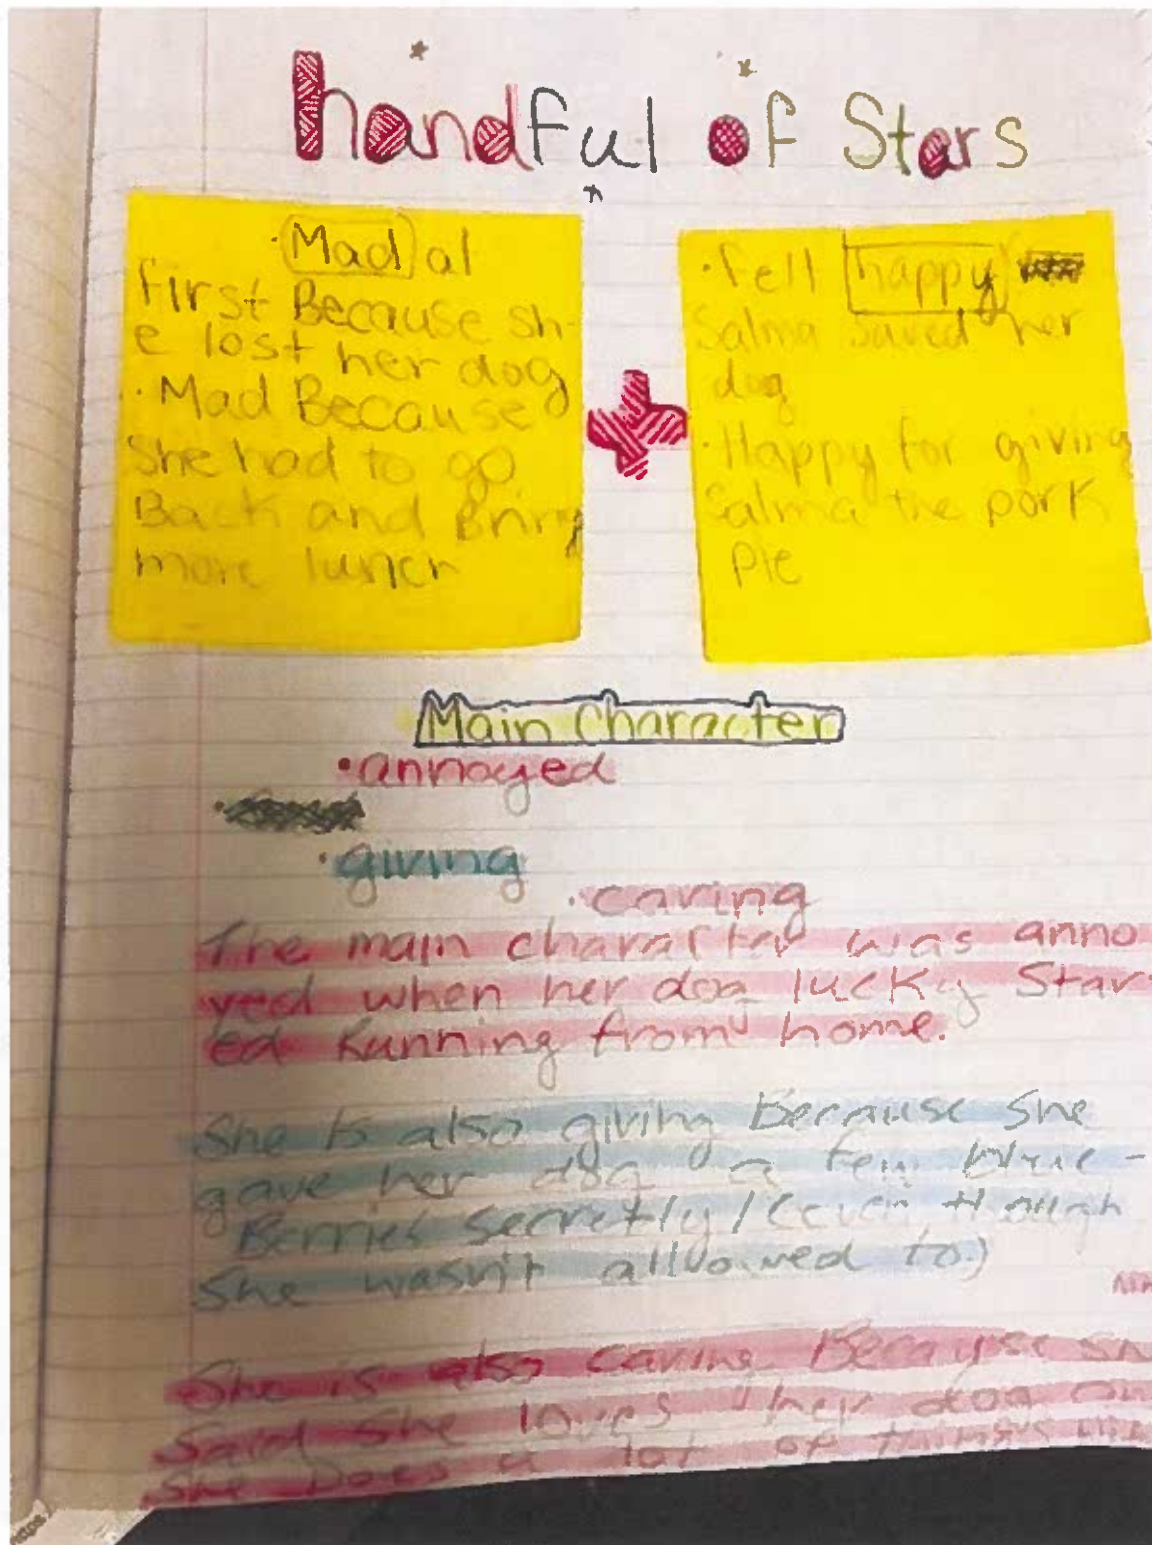 handful of Stars
· Mad at
first Because sh-
e lost her dog
· Mad Because
She had to go
Back and Bring
more lunch
· fell happy
Salma saved her
dog
· Happy for giving
Salma the pork
Pie
Main Character
· annoyed
· giving
· caring
The main character was anno
yed when her dog lucky Start
ed Running from home.
She is also giving Because She
gave her dog a few blue-
Berries secretly/(even though
She wasn't allowed to.)
She is also caring Because sh
Said She loves her dog an
She Does a lot of things